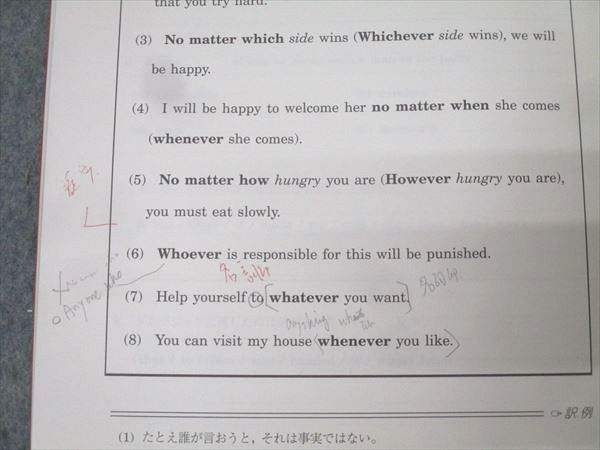 that you try hard.
(3) No matter which side wins (Whichever side wins), we will
be happy.
(4) I will be happy to welcome her no matter when she comes
(whenever she comes).
(5) No matter how hungry you are (However hungry you are),
you must eat slowly.
(6) Whoever is responsible for this will be punished.
Anyone who
(7) Help yourself to whatever you want.
anything
(8) You can visit my house whenever you like.
訳例
(1) たとえ誰が言おうと，それは事実ではない。